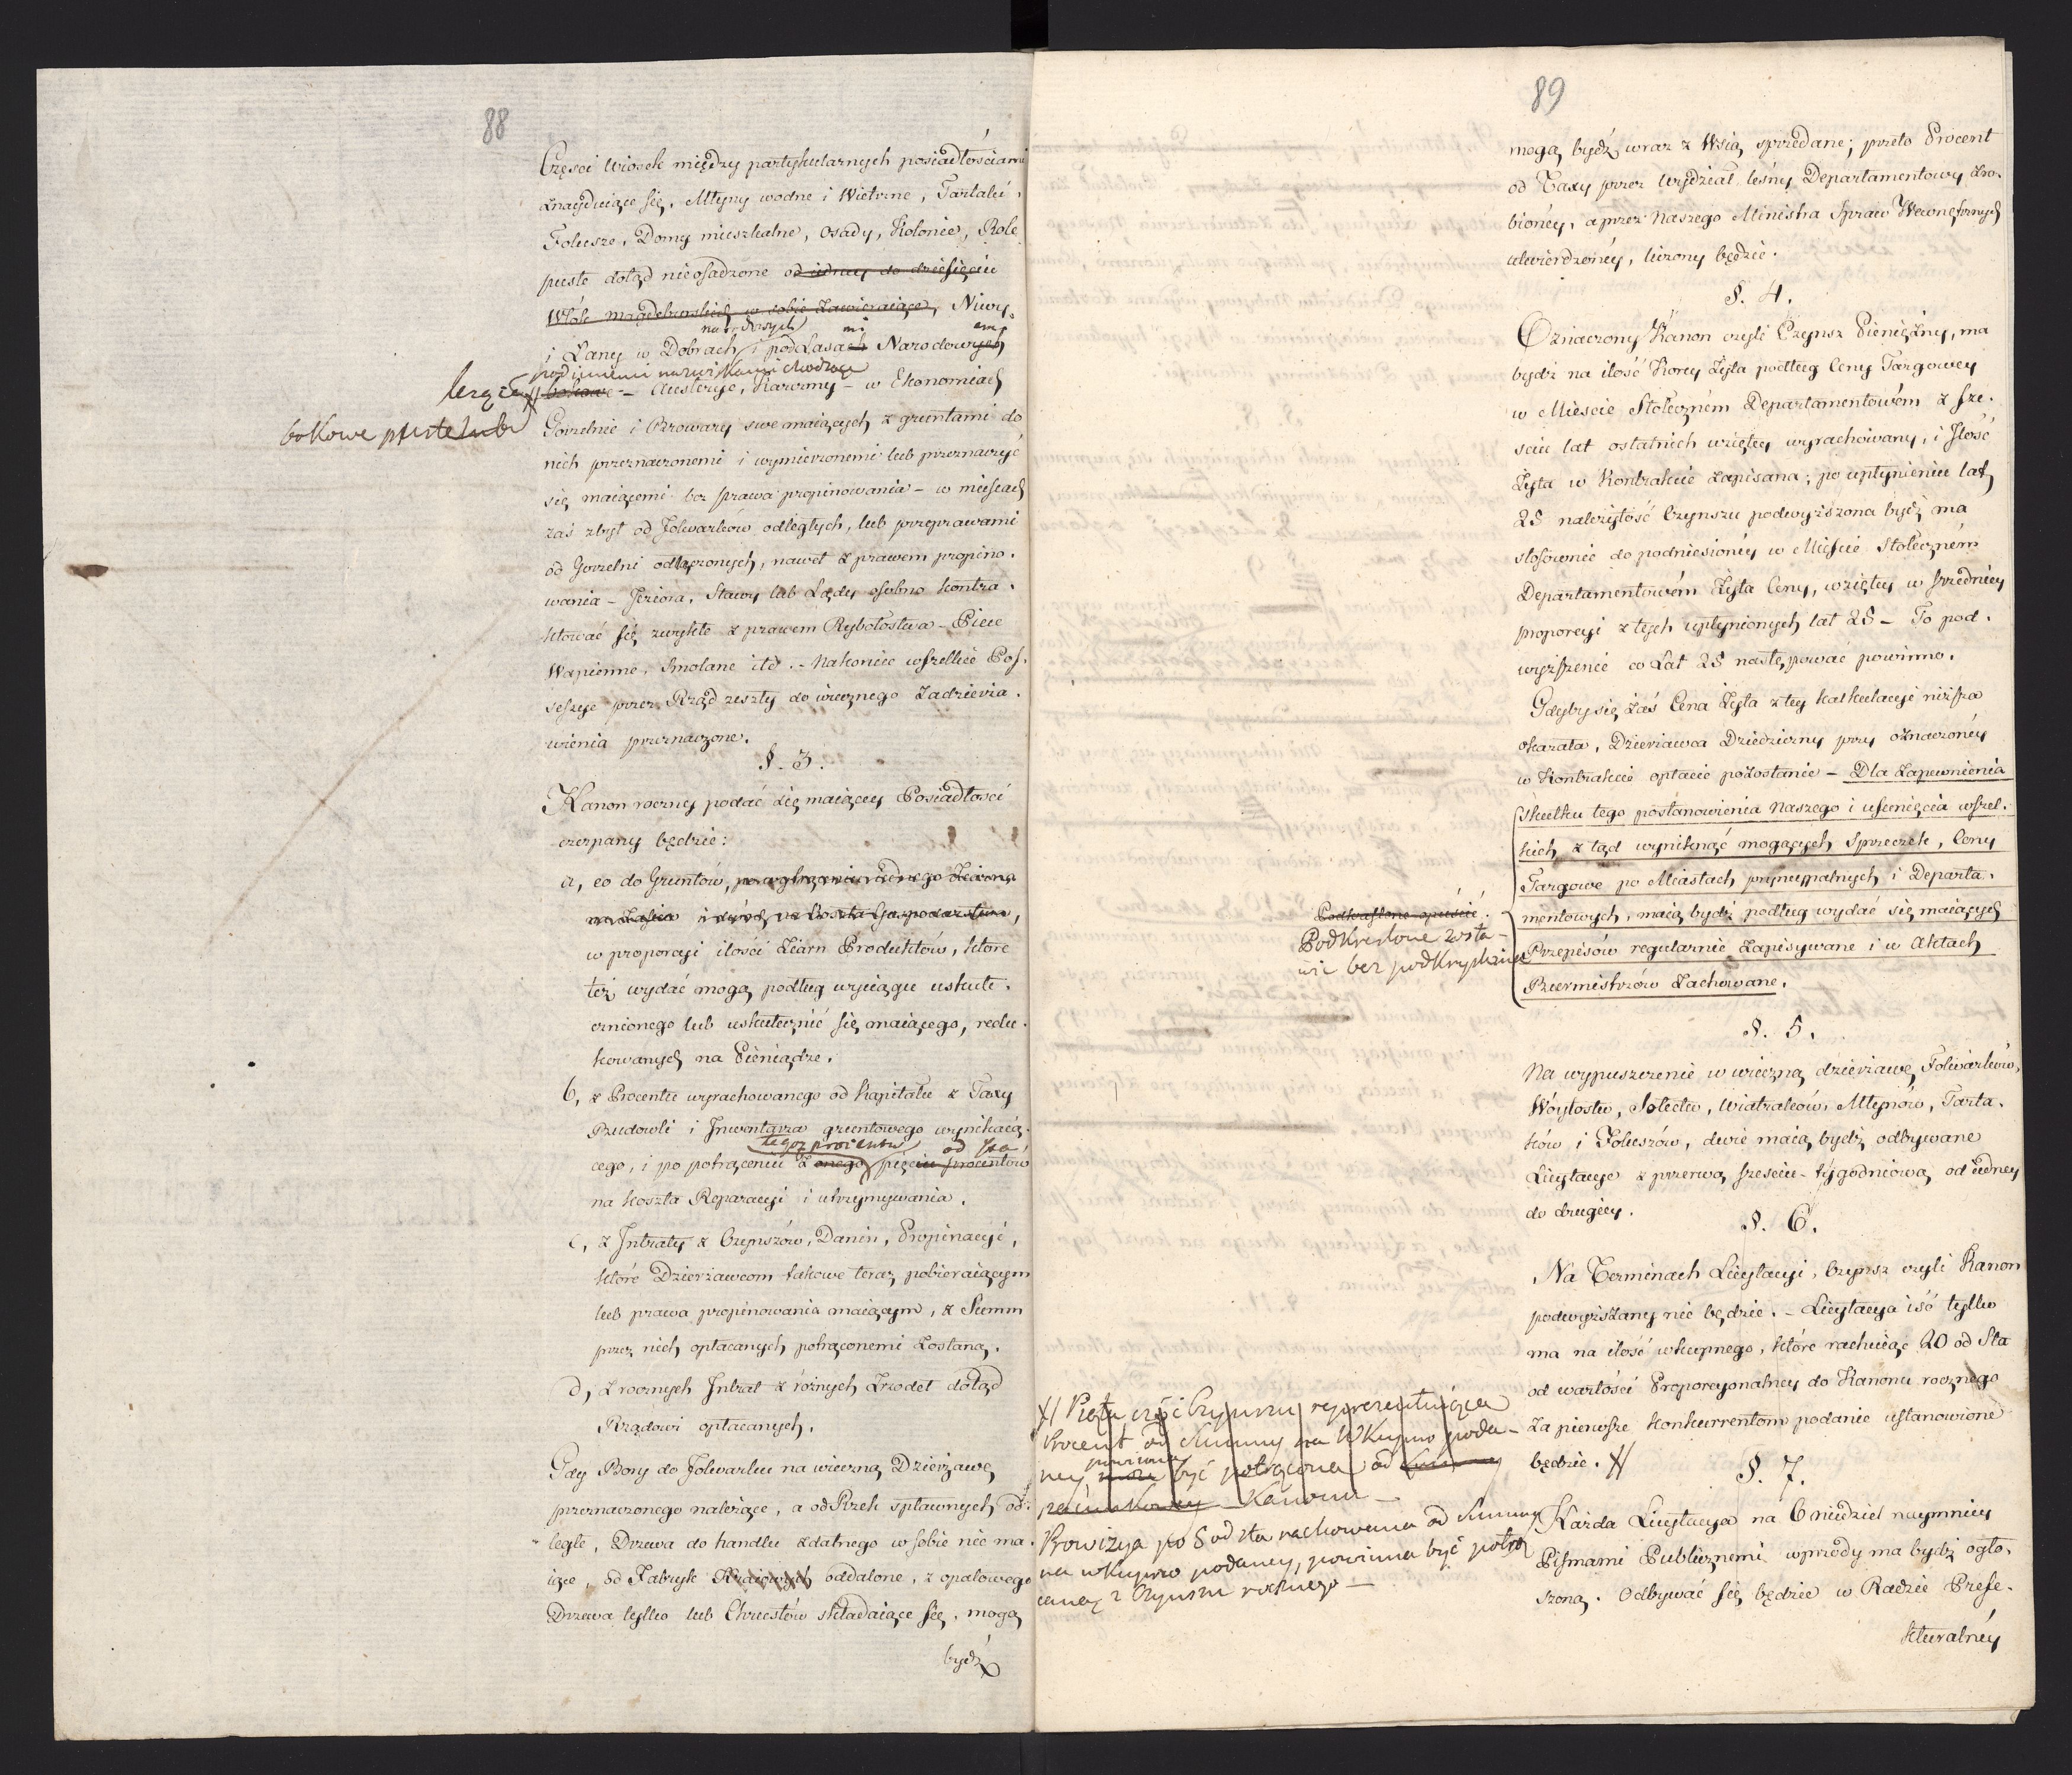 88
Częsci Wiosek między partykularnych posiadłościami
znayduiące się, Młyny wodne i Wietrzne, Tartaki,
Folusze, Domy mieszkalne, osady, Kolonie, Role
puste dotąd nieosadzone od iedney do dziesięciu
Włók magdeburskich w sobie zawieraiące, Niwy,
narodowych mi emi
i Łany w Dobrach i pod Lasach Narodowych
pod innemi nazwiskami chodzące
leżące bokowe - Austerye, Karczmy - w Ekonomiach
bokowe puste lub
Gorzelnie i Browary swe maiących z gruntami do
nich przeznaczonemi i wymierzonemi lub przeznaczyć
się maiącemi bez prawa propinowania - w mieyscach
zaś zbyt od Folwarków odległych, lub przeprawami
od Gorzelni odłączonych, nawet z prawem propino-
wania - Jeziora, Stawy lub Lądy osobno kontra-
ktować się zwykłe z prawem Rybołostwa - Piece
Wapienne, Smolane itd. - Nakoniec wszelkie Pos-
sessye przez Rząd zeszły do wiecznego Zadzierża-
wienia przeznaczone.
§. 3.
Kanon roczny podać się maiącey Posiadłosci
czerpany będzie:
a, co do Gruntów, po wytrąceniu iednego Ziarna
na Zasiew i na Koszta Gospodarstwa,
w proporcyi ilości Ziarn Produktów, które
też wydać mogą podług wyciągu uskute-
cznionego lub uskutecznić się maiącego, redu-
kowanych na Pieniądze.
b, z Procentu wyrachowanego od Kapitału z Taxy
Budowli i Inwentarza gruntowego wynikaią-
tegoż procentów od sta
cego, i po potrąceniu z onego pięciu procentów
na koszta Reparacyi i utrzymywania.
c, z Intraty z Czynszów, Danin, Propinacyi,
które Dzierżawcom takowe teraz pobieraiącym
lub prawa propinowania maiącym, z Summ
przez nich opłacanych potrąconemi zostaną.
d, z rocznych Intrat z różnych Zrodeł dotąd
Rządowi opłacanych.
Gdy Bory do Folwarku na wieczną Dzierżawę
przeznaczonego należące, a od Rzek spławnych od-
ległe, Drzewa do handlu zdatnego w sobie nie ma-
iące, od Fabryk Kraiowych oddalone, z opałowego
Drzewa tylko lub Chrustów składaiące się, mogą
bydź
89
mogą bydź wraz z Wsią sprzedane; przeto Procent
od Taxy przez Wydział leśny Departamentowy zro-
bioney, a przez Naszego Ministra Spraw Wewnętrznych
utwierdzoney, liczony będzie.
§. 4.
Oznaczony Kanon czyli Czynsz Pieniężny, ma
bydź na ilość Korcy Żyta podług Ceny Targowey
w Miescie Stołeczném Departamentowém z sze-
sciu lat ostatnich wziętey wyrachowany, i Ilość
Żyta w Kontrakcie zapisana; po upłynieniu lat
25 należytość Czynszu podwyższona bydź ma
stosownie do podniesioney w Mieście Stołeczném
Departamentowém Żyta Ceny, wziętey w średniey
proporcyi z tych upłynionych lat 25 - To pod-
wyższenie co Lat 25 następować powinno.
Gdyby się zaś Cena Żyta z tey kalkulacyi niższa
okazała, Dzierżawca Dziedziczny przy oznaczoney
w Kontrakcie opłacie pozostanie - Dla zapewnienia
skutku tego postanowienia Naszego i usunięcia wszel-
kich z tąd wyniknąć mogących sprzeczek, Ceny
Targowe po Miastach pryncypalnych i Departa-
mentowych, maią bydź podług wydać się maiących
Przepisów regularnie zapisywane i w Aktach
Burmistrzów zachowane.
Podkreślone opuścić.
Podkreślone zosta-
wić bez podkryślenia
§. 5.
Na wypuszczenie w wieczną dzierżawę Folwarków,
Wóytostw, Sołectw, Wiatraków, Młynów, Tarta-
ków i Foluszów, dwie maią bydź odbywane
Licytacye z przerwą sześciu-tygodniową od iedney
do drugiey.
§. 6.
Na Terminach Licytacyi, Czynsz czyli Kanon
podwyższany nie będzie. - Licytacya iść tylko
ma na ilość wkupnego, które rachuiąc 20 od Sta
od wartości Proporcyonalney do Kanonu rocznego
za pierwsze konkurrentom podanie ustanowione
będzie. X/
X/ Piąta część Czynszu reprezentuiąca
Procent od Summy na Wkupno poda-
powinna
ney być potrącona od
Kanonu -
Prowizya po 5 od sta rachowana od Summy
na wkupno podaney, powinna być potrą
caną z Czynszu rocznego -
§. 7.
Każda Licytacya na 6 niedziel naymniey
Pismami Publicznemi wprzódy ma bydź ogło-
szoną. Odbywać się będzie w Radzie Prefe-
kturalnéy